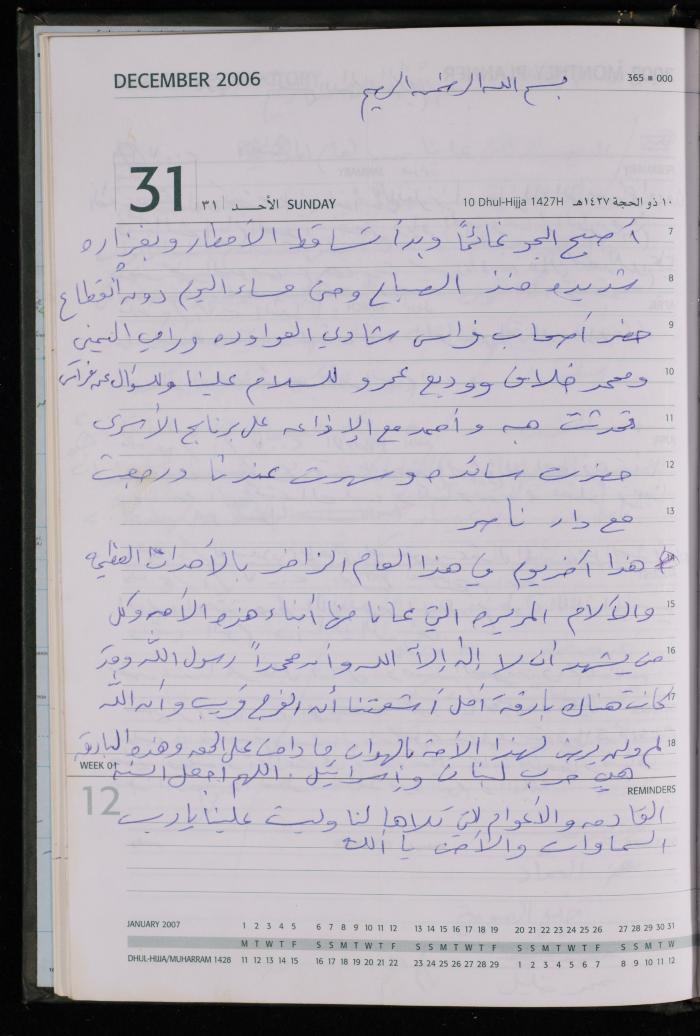 DECEMBER 2006
بسم الله الرحمن الرحيم
365 ■ 000
31
٣١ الأحـــد SUNDAY
10 Dhul-Hijja 1427H ١٠ ذو الحجة ١٤٢٧هـ
7 أصبح الجو غائماً وبدأ تساقط الأمطار وبغزاره
8 شديده منذ الصباح وحتى مساء اليوم دون انقطاع
9 حضر أصحاب فراس شادي العواوده ورامي اليمني
10 ومحمد خلاف ووديع عمرو للسلام علينا وللسؤال عن فراس
11 تحدثت هبه وأحمد مع الإذاعه على برنامج الأسرى
12 حضرت سائده وسهرت عندنا ورجعت
13 مع دار ناصر
هذا آخر يوم في هذا العام الزاخر بالأحداث العظيمه
15 والآلام المريره التي عانا منها أبناء هذه الأمه وكل
16 من يشهد أن لا إله إلا الله وأن محمداً رسول الله وقد
17 كانت هناك بارقة أمل أشعرتنا أن الفرج قريب وأن الله
18 لم ولن يرضى لهذا الأمة بالهوان ما دامت على الحق وهذه البارقه
WEEK 01
هي حرب لبنان وإسرائيل. اللهم اجعل السنه
12
REMINDERS
القادمه والأعوام التي تلاها لنا وليست علينا يا رب
السماوات والأرض يا الله
JANUARY 2007 1 2 3 4 5 6 7 8 9 10 11 12 13 14 15 16 17 18 19 20 21 22 23 24 25 26 27 28 29 30 31
M T W T F S S M T W T F S S M T W T F S S M T W T F S S M T W
DHUL-HIJJA/MUHARRAM 1428 11 12 13 14 15 16 17 18 19 20 21 22 23 24 25 26 27 28 29 1 2 3 4 5 6 7 8 9 10 11 12